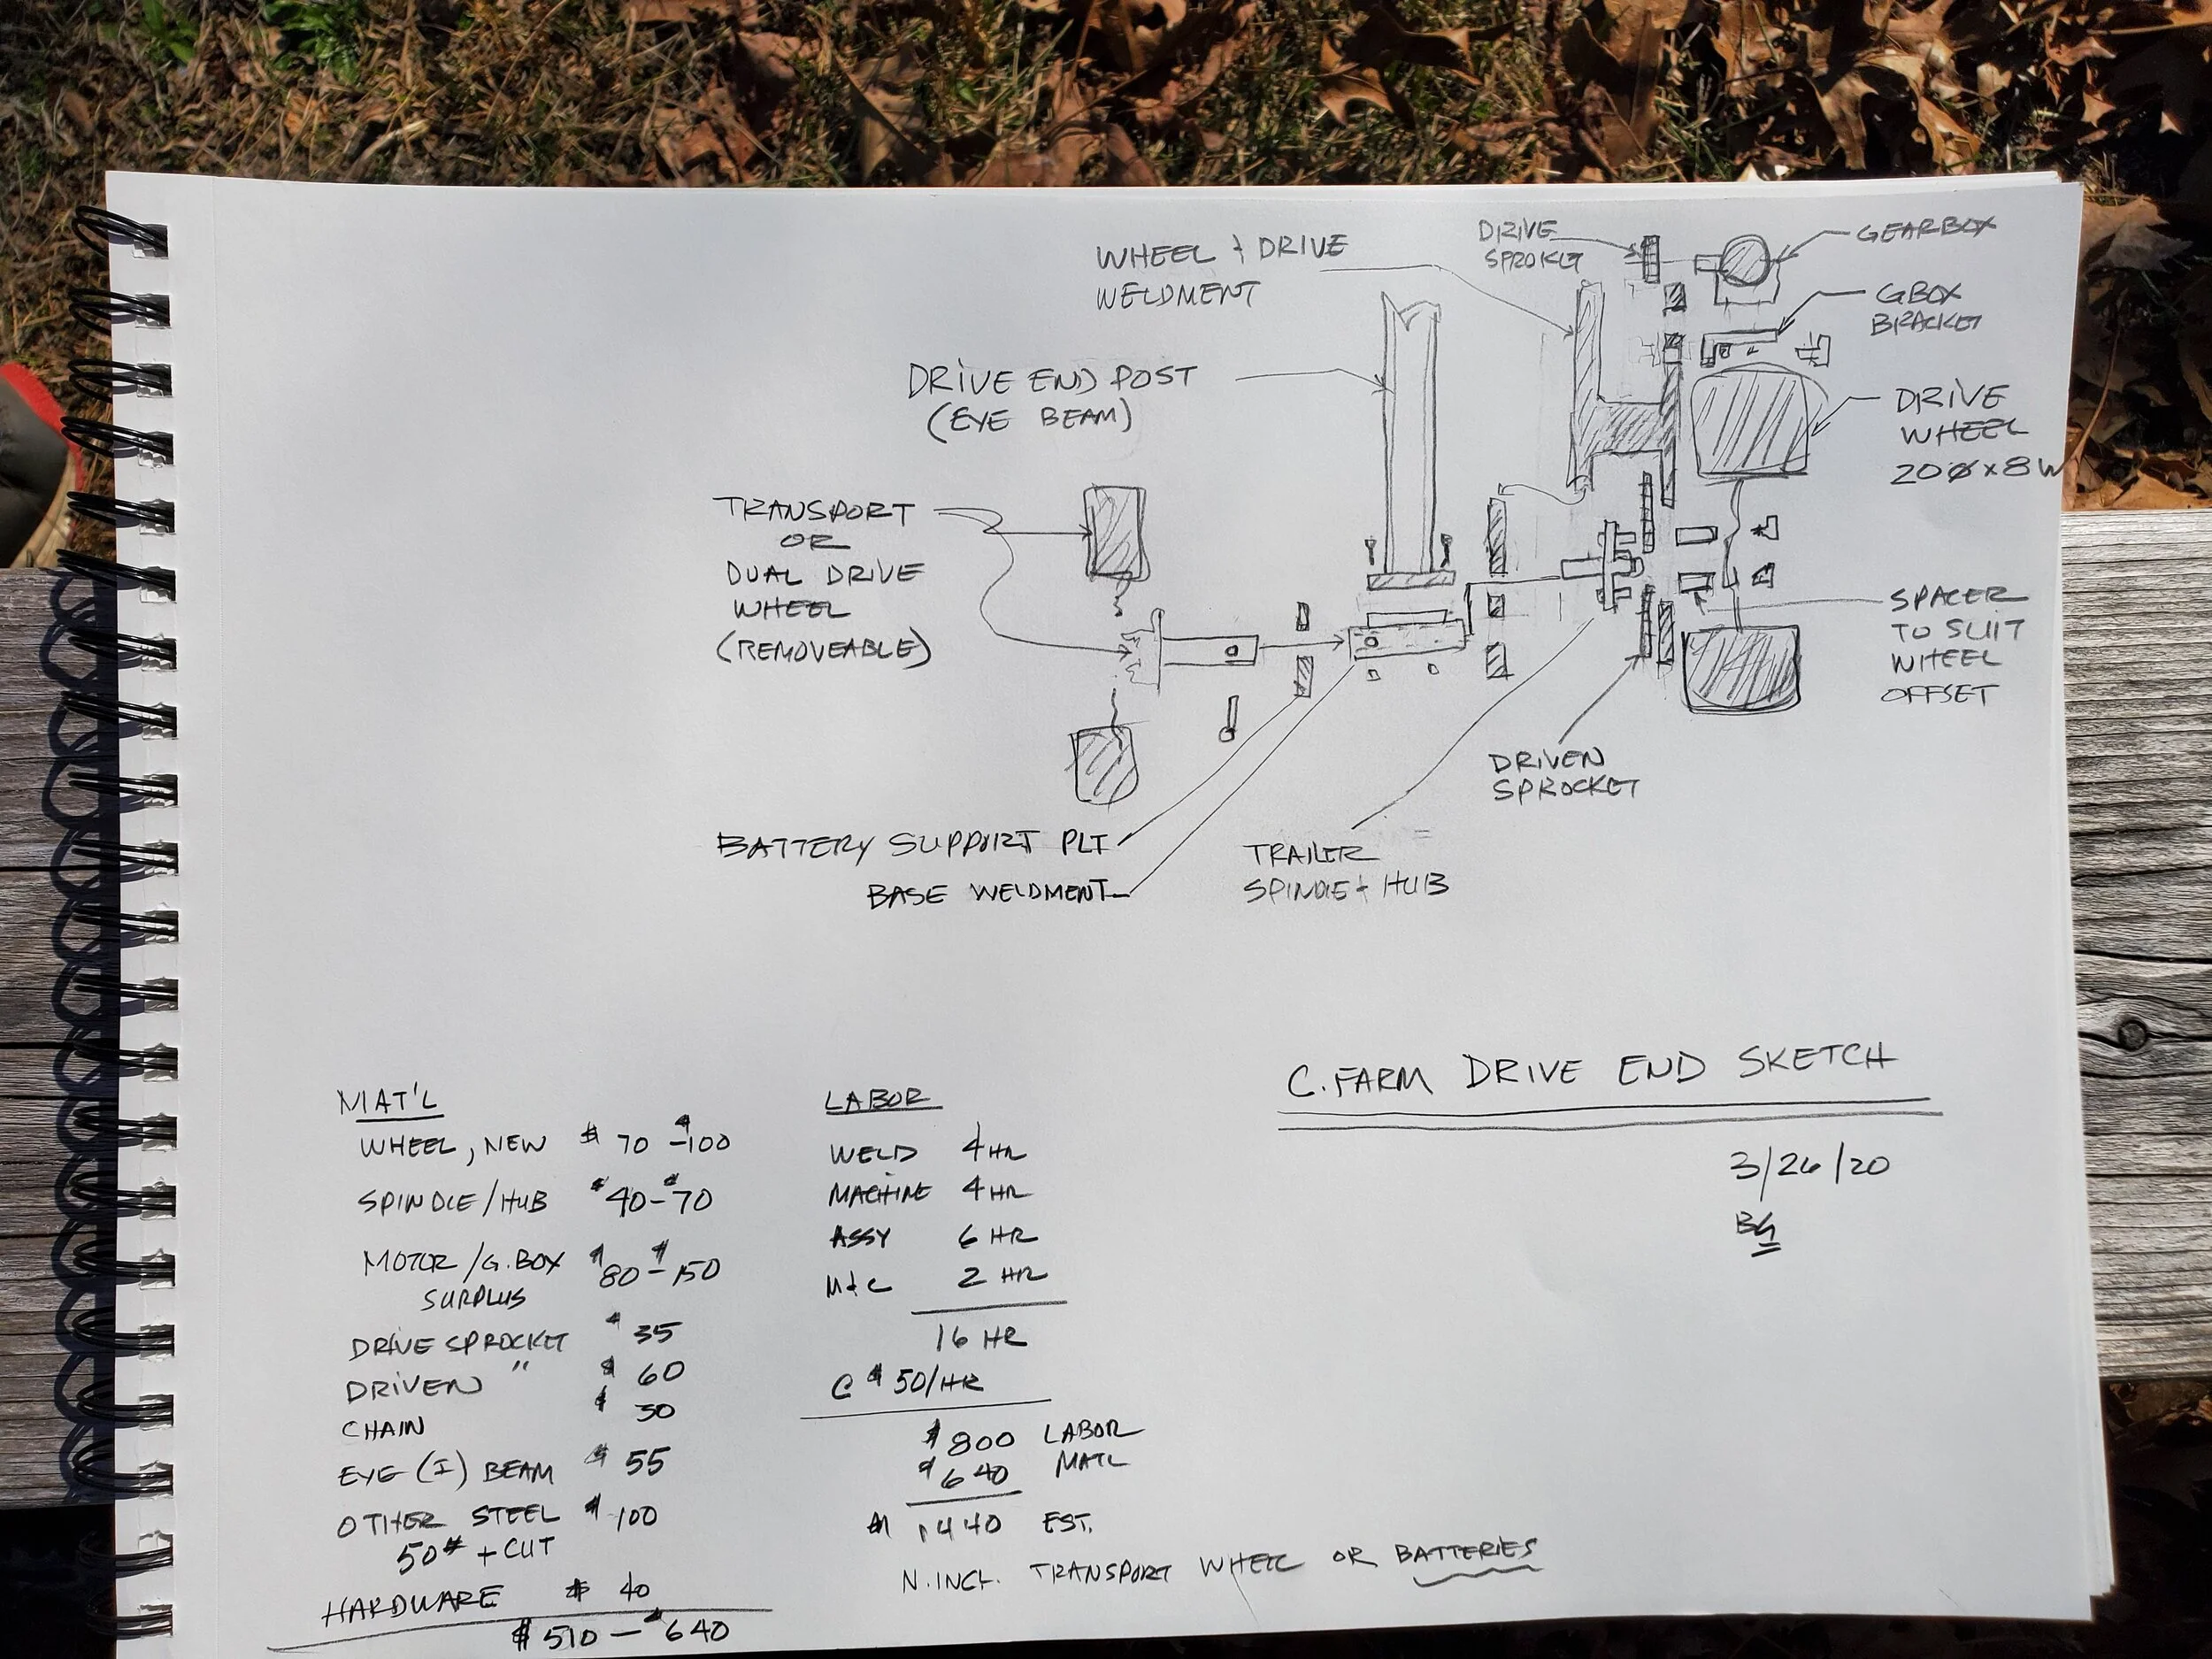 WHEEL + DRIVE
WELDMENT
DRIVE
SPROKET
GEARBOX
GBOX
BRACKET
DRIVE END POST
(EYE BEAM)
DRIVE
WHEEL
20Ø x 8W
TRANSPORT
OR
DUAL DRIVE
WHEEL
(REMOVEABLE)
SPACER
TO SUIT
WHEEL
OFFSET
DRIVEN
SPROCKET
BATTERY SUPPORT PLT
BASE WELDMENT
TRAILER
SPINDLE + HUB
C. FARM DRIVE END SKETCH
3/26/20
BG
MAT'L
WHEEL, NEW $ 70 - $100
SPINDLE/HUB $40 - $70
MOTOR/G.BOX $80 - $150
SURPLUS
DRIVE SPROCKET $ 35
DRIVEN " $ 60
CHAIN $ 30
EYE (I) BEAM $ 55
OTHER STEEL $ 100
50# + CUT
HARDWARE $ 40
$ 510 - $640
LABOR
WELD 4 HR
MACHINE 4 HR
ASSY 6 HR
2 HR
16 HR
@ $50/HR
$800 LABOR
$640 MATL
1440 EST.
N. INCL. TRANSPORT WHEEL OR BATTERIES